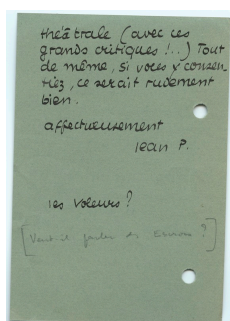 théâtrale (avec ces
grands critiques !..) Tout
de même, si vous y consen-
tiez, ce serait rudement
bien.
affectueusement
Jean P.
les Voleurs ?
[Veut-il parler des ?]